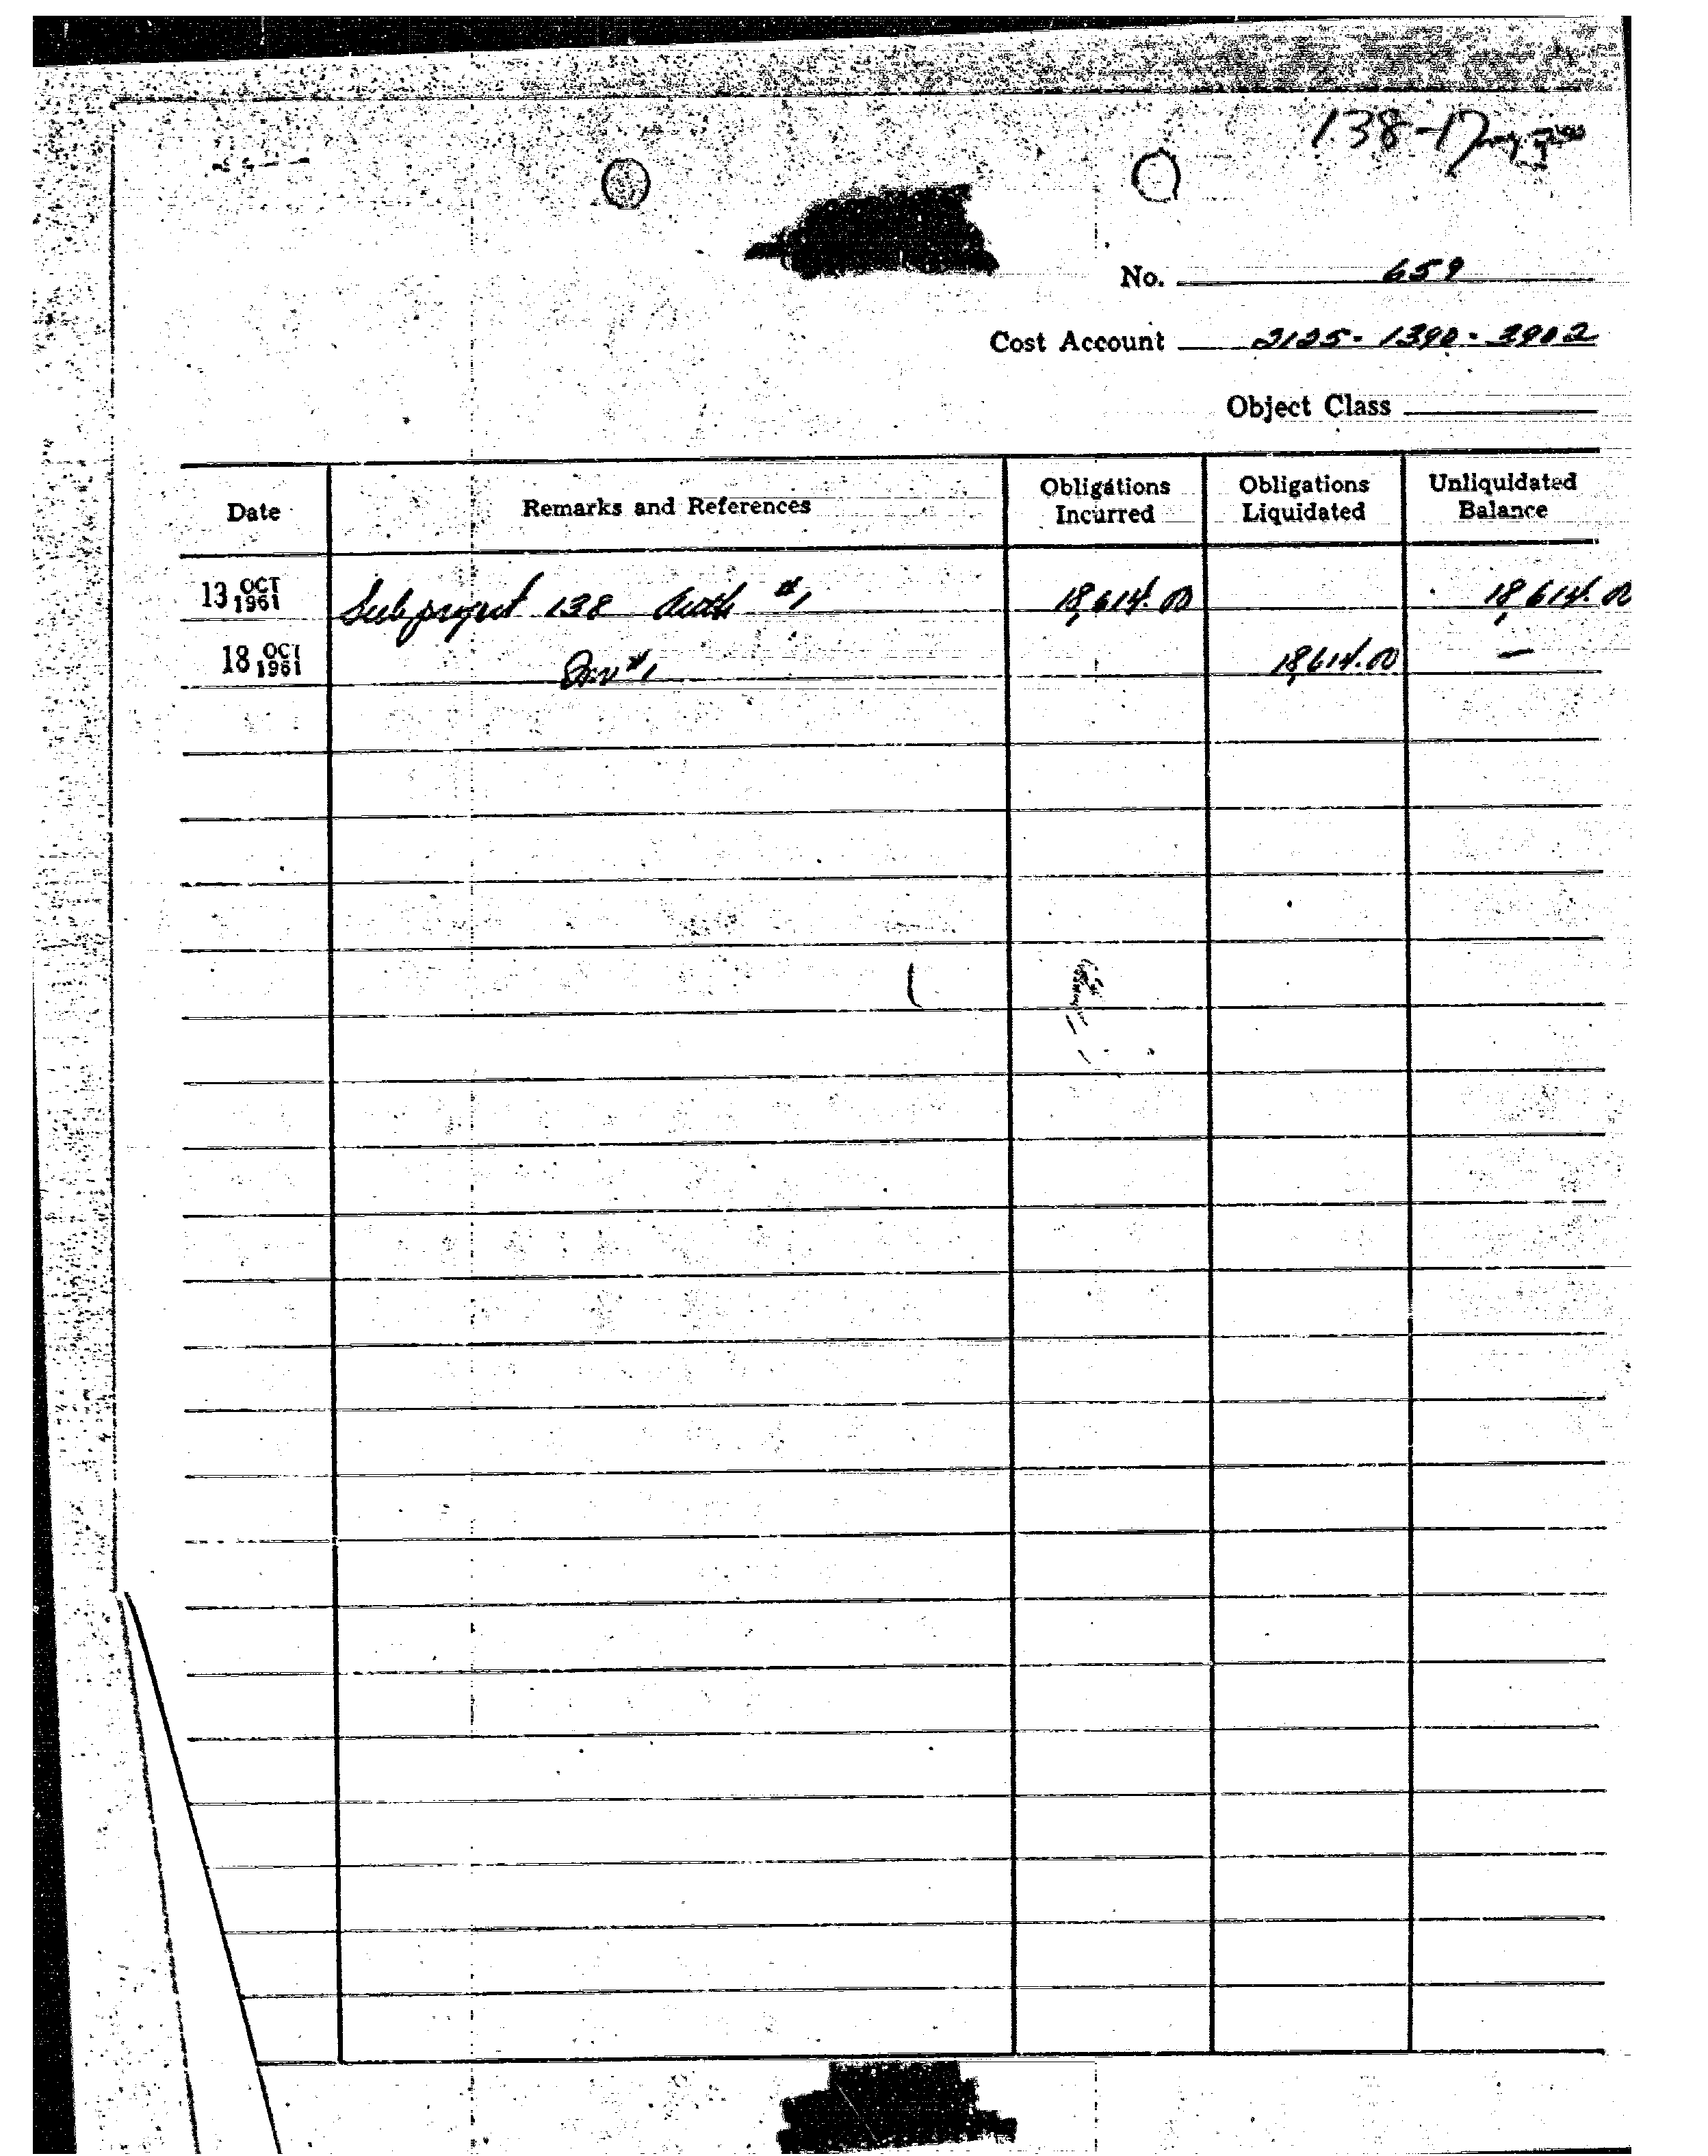 138-17
No. 659
Cost Account 2125-1390-3902
Object Class
Date Remarks and References Obligations Incurred Obligations Liquidated Unliquidated Balance
13 OCT 1961 Subproject 138 Auth #1 18,614.00 18,614.00
18 OCT 1961 Inv #1 18,614.00 —